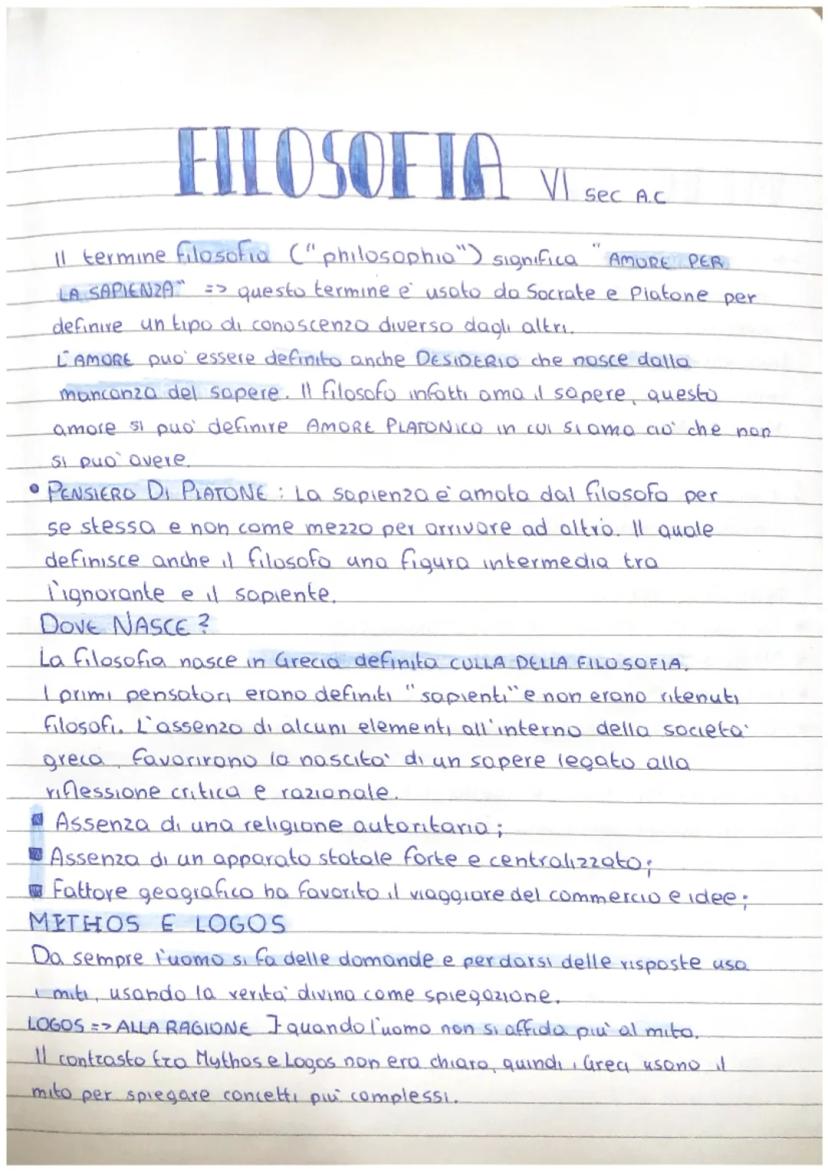 FILOSOFIA VI sec A.C
Il termine filosofia ("philosophia") significa "AMORE PER
LA SAPIENZA" => questo termine e' usato da Socrate e Platone per
definire un tipo di conoscenza diverso dagli altri.
L'AMORE puo' essere definito anche DESIDERIO che nasce dalla
mancanza del sapere. Il filosofo infatti ama il sapere, questo
amore si puo' definire AMORE PLATONICO in cui si ama cio' che non
si puo' avere.
• PENSIERO DI PLATONE: La sapienza e' amata dal filosofo per
se stessa e non come mezzo per arrivare ad altro. Il quale
definisce anche il filosofo una figura intermedia tra
l'ignorante e il sapiente.
DOVE NASCE?
La filosofia nasce in Grecia definita CULLA DELLA FILOSOFIA.
I primi pensatori erano definiti "sapienti" e non erano ritenuti
filosofi. L'assenza di alcuni elementi all'interno della societa'
greca, favorirono la nascita' di un sapere legato alla
riflessione critica e razionale.
▪ Assenza di una religione autoritaria;
▪ Assenza di un apparato statale forte e centralizzato;
▪ Fattore geografico ha favorito il viaggiare del commercio e idee;
MYTHOS E LOGOS
Da sempre l'uomo si fa delle domande e per darsi delle risposte usa
i miti, usando la verita' divina come spiegazione.
LOGOS => ALLA RAGIONE } quando l'uomo non si affida piu' al mito.
Il contrasto tra Mythos e Logos non era chiaro, quindi i Greci usano il
mito per spiegare concetti piu' complessi.